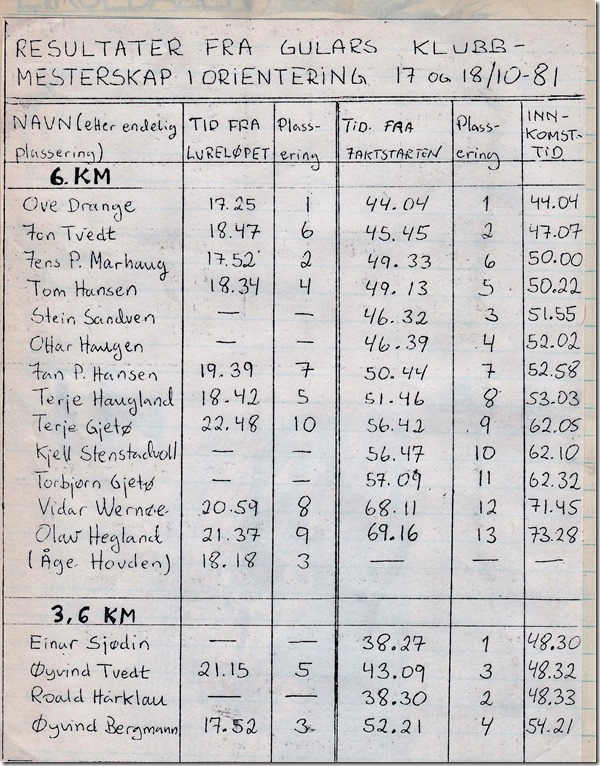 RESULTATER FRA GULARS KLUBB-
MESTERSKAP I ORIENTERING 17 OG 18/10-81
NAVN (etter endelig plassering) TID FRA LURELØPET Plass-ering TID. FRA JAKTSTARTEN Plass-ering INN-KOMST-TID
6. KM
Ove Drange 17.25 1 44.04 1 44.04
Jon Tvedt 18.47 6 45.45 2 47.07
Jens P. Marhaug 17.52 2 49.33 6 50.00
Tom Hansen 18.34 4 49.13 5 50.22
Stein Sandven — — 46.32 3 51.55
Ottar Haugen — — 46.39 4 52.02
Jan P. Hansen 19.39 7 50.44 7 52.58
Terje Haugland 18.42 5 51.46 8 53.03
Terje Gjetø 22.48 10 56.42 9 62.05
Kjell Stenstadvoll — — 56.47 10 62.10
Torbjørn Gjetø — — 57.09 11 62.32
Vidar Wernøe 20.59 8 68.11 12 71.45
Olav Hegland 21.37 9 69.16 13 73.28
(Åge Hovden) 18.18 3 — — —
3,6 KM
Einar Sjødin — — 38.27 1 48.30
Øyvind Tvedt 21.15 5 43.09 3 48.32
Roald Hårklau — — 38.30 2 48.33
Øyvind Bergmann 17.52 3 52.21 4 54.21